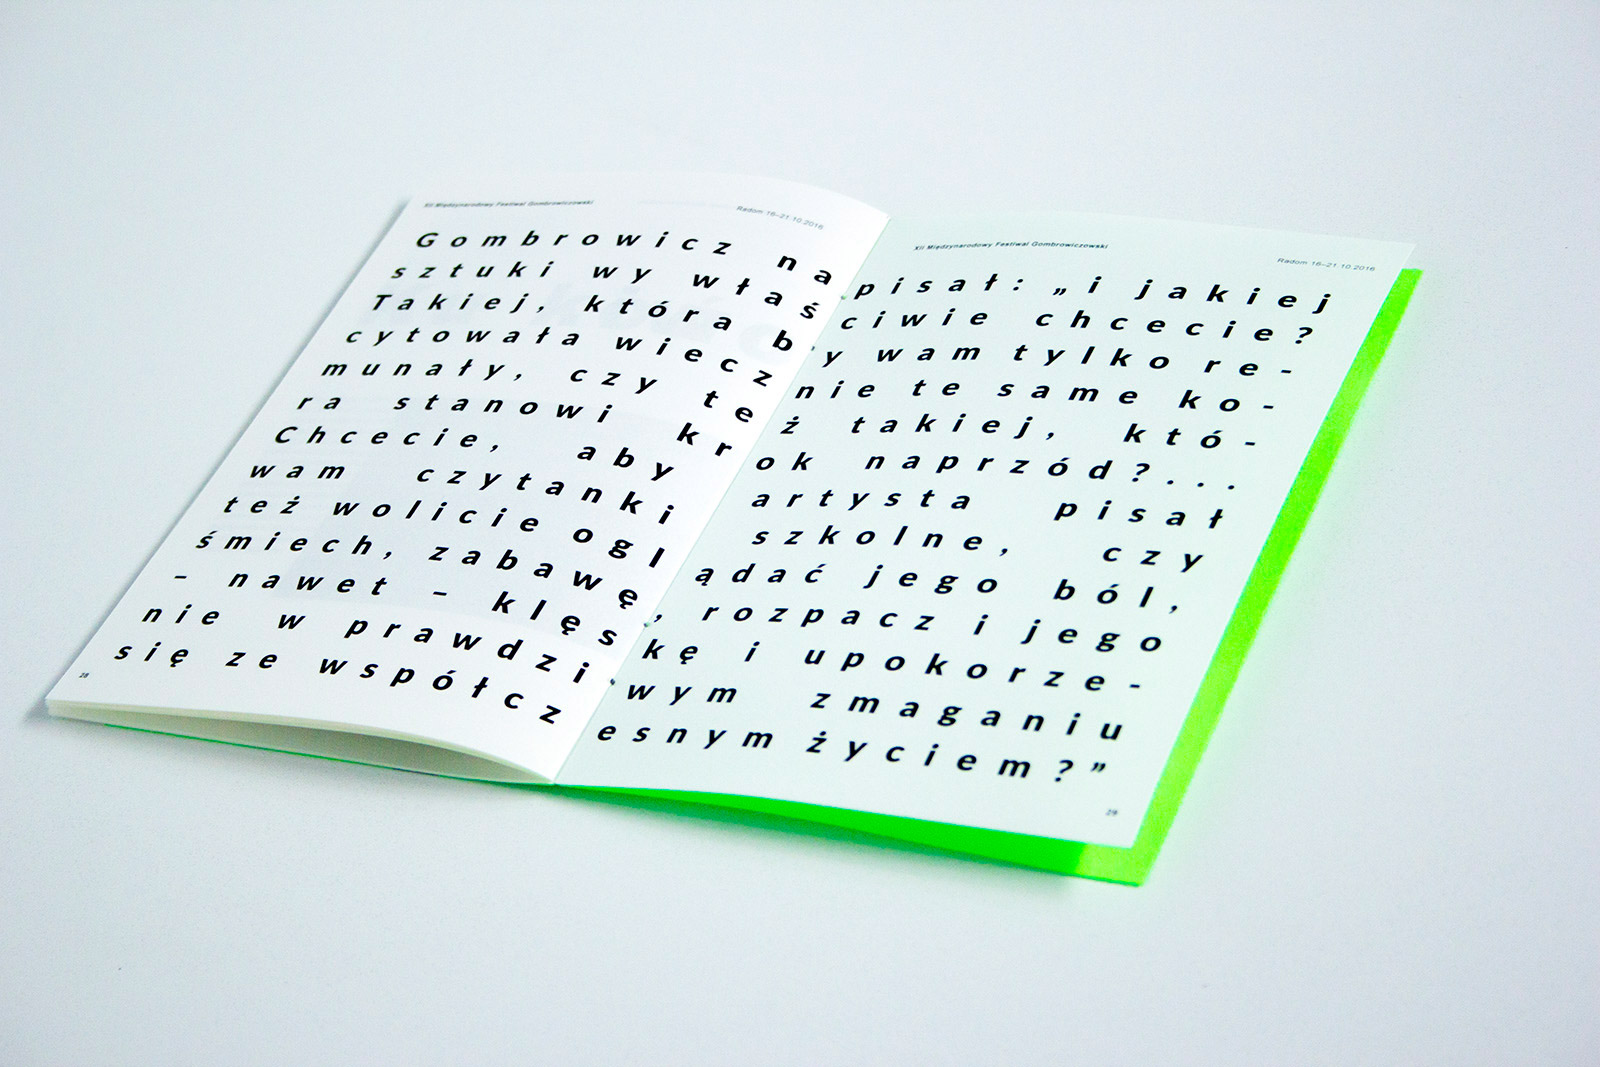 XII Międzynarodowy Festiwal Gombrowiczowski
Radom 16–21.10.2016
XII Międzynarodowy Festiwal Gombrowiczowski
Radom 16–21.10.2016
Gombrowicz napisał: „i jakiej
sztuki wy właściwie chcecie?
Takiej, która by wam tylko re-
cytowała wiecznie te same ko-
munały, czy też takiej, któ-
ra stanowi krok naprzód?...
Chcecie, aby artysta pisał
wam czytanki szkolne, czy
też wolicie oglądać jego ból,
śmiech, zabawę, rozpacz i jego
– nawet – klęskę i upokorze-
nie w prawdziwym zmaganiu
się ze współczesnym życiem?”
28
29